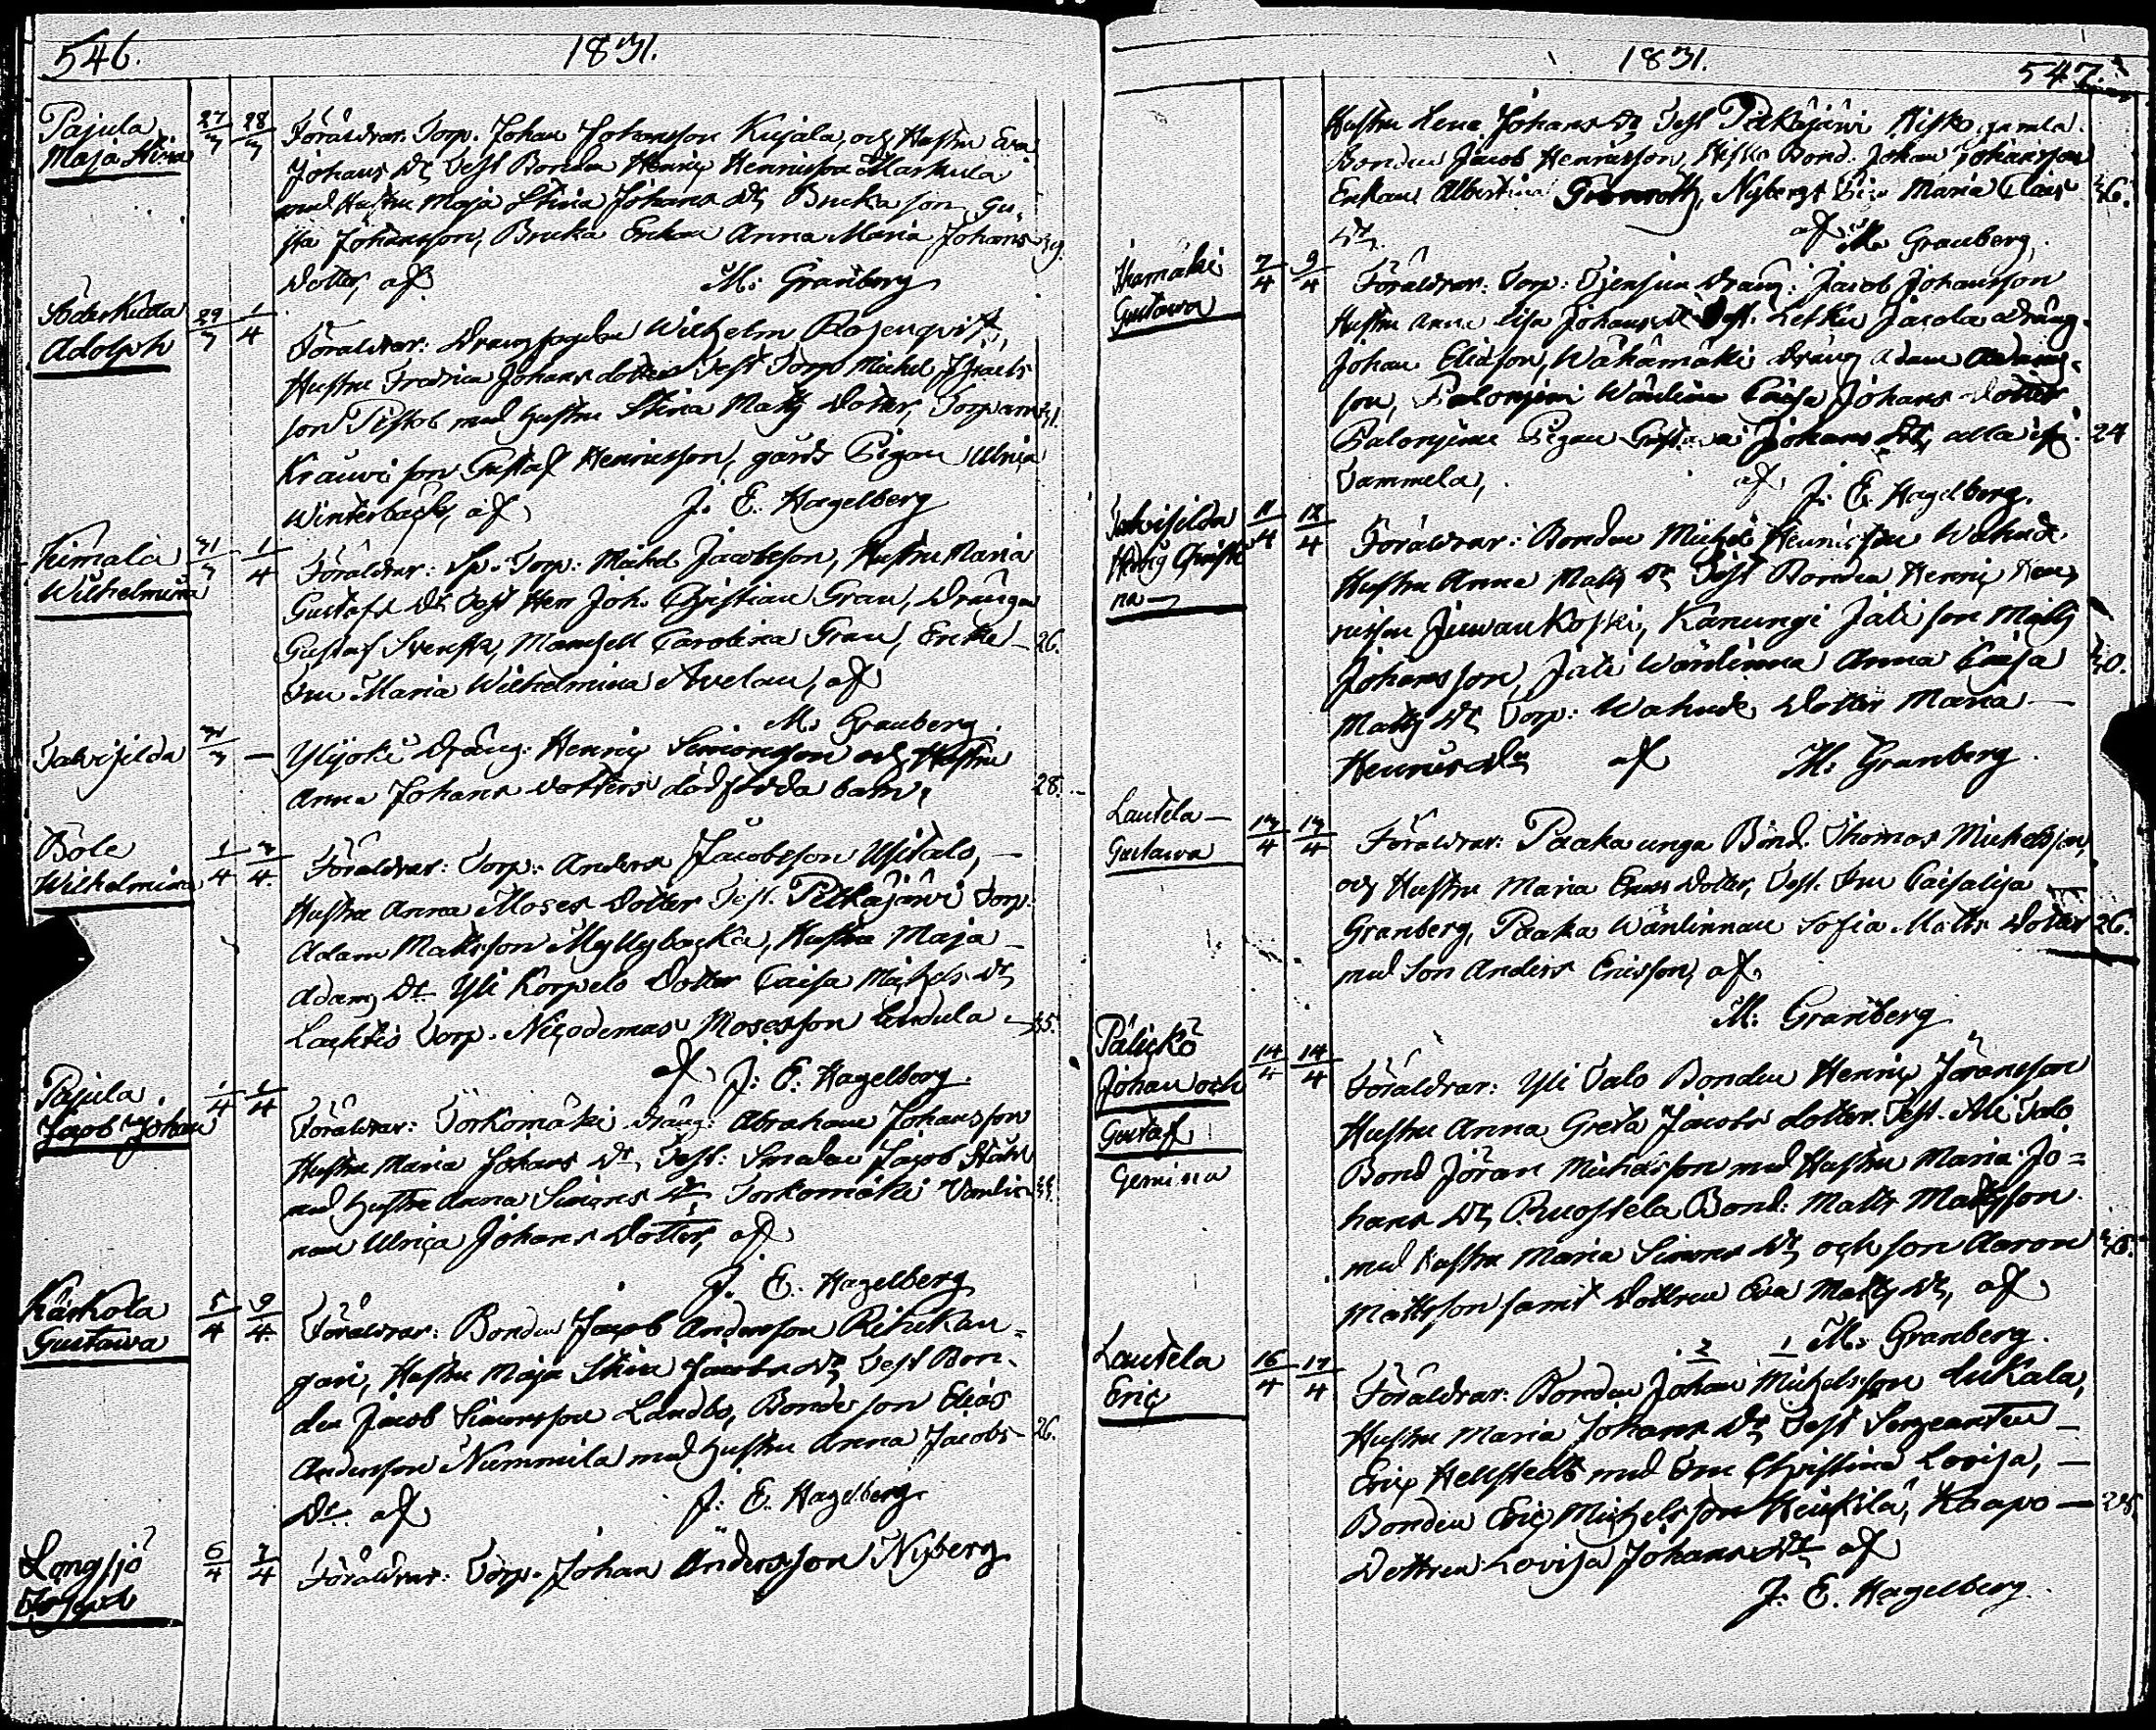 546. 1831.
Pajula
Maja Stina
27/3 28/3
Föräldrar: Torp. Johan Johansson Kujala, och Hustru Eva
Johans Dr, Test Bonden Henric Henricsson Markula
med Hustru Maja Stina Johans Dr, Bruka son, Gu-
sta Johansson, Bruka Enkan Anna Maria Johans 39.
Dotter, af M: Granberg
Adolph
29/3 1/4
Föräldrar: Drängfogden Wilhelm Rosenqvist,
Hustru Fredrica Johans dotter Test Torp Michel Israels
son med hustru Stina Matts Dotter, Torparn 31.
son Gustaf Henricsson, gårds Pigan Ulrica
Winterbäck, af J. E. Hagelberg
Kimala
Wilhelmina
31/3 1/4
Föräldrar: Sp. Torp: Michel Jacobsson, Hustru Maria
Gustafs Dr Test Herr Joh. Christian Grau, Drängen
Gustaf Svensk, Mamsell Carolina Grau, Enke 26.
Fru Maria Wilhelmina Avelan, af
M: Granberg
Talvisilda
31/3 —
Ylijoki Dräng: Henric Simonsson och Hustru
Anna Johans Dotters dödfödda barn. 28.
Böle
Wilhelmina
1/4 3/4
Föräldrar: Torp: Anders Jacobsson Usitalo, —
Hustru Anna Moses Dotter Test. Pitkäjärvi Torp:
Adam Mattsson Myllybacka, Hustru Maja —
Adams Dr Yli Korpelo Dotter Caisa Michels Dr
Lachtis Torp. Nicodemus Mosesson 35.
af J. E. Hagelberg
Pajula
Jacob Johan
1/4 1/4
Föräldrar: Torkomäki Dräng: Abraham Johansson
Hustru Maria Johans Dr, Test: Smeden Jacob Ståhl
med hustru Anna Simons Dr Torkomäki Wänlin- 33.
nan Ulrica Johans Dotter, af
J. E. Hagelberg
Kärkola
Gustawa
5/4 9/4
Föräldrar: Bonden Jacob Andersson Rihikan-
gari, Hustru Maja Stina Jacobs Dr, Test Bon-
den Jacob Simonsson Landbo, Bonde son Elias
Andersson Nummila med hustru Anna Jacobs 26.
Dr af J. E. Hagelberg
Långsjö
6/4 7/4
Föräldrar: Torp. Johan Andersson Nyberg
1831. 547.
Hustru Lena Johans Dr Test Pitkäjärvi Hisko gamla
Bonden Jacob Henricsson, Hisko Bond. Johan Johansson
Enkan Albertina Grönroth, Nybergs Pig. Maria Clas 36.
Dr af M: Granberg.
Gustawa
7/4 9/4
Föräldrar: Torp: Dräng: Jacob Johansson
Hustru Anna Lisa Johans Dr Test. Letku Jacola dräng
Johan Eliasson, Wähämäki Dräng Adam Adams-
son, Palonjimi Wänlinnan Caisa Johans dotter
Palonjimi Pigan Gustava Johans Dr, alla ifr. 24
Tammela, af J. E. Hagelberg.
Talvisilda
Hedvig Christi
na
11/4 12/4
Föräldrar: Bonden Michel Henricsson Wahude
Hustru Anna Matts Dr Test Bonden Henric Hen-
ricsson Juvankoski, Kanungi Jäli son Matts
Johansson, Jäli Wänlinna Anna Caisa 30.
Matts Dr Torp: Wahude Dotter Maria —
Henrics Dr af M: Granberg.
Lautela —
Gustawa
13/4 13/4
Föräldrar: Paaka unga Bond. Thomas Michelsson
och Hustru Maria Erics Dotter, Test. Fru Caisa Lisa
Granberg, Paaka Wänlinnan Sofia Matts Dotter 26.
med son Anders Ericsson, af
M: Granberg
Pälickö
Johan och
Gustaf
Gemina
14/4 14/4
Föräldrar: Yli Talo Bonden Henric Jöransson
Hustru Anna Greta Jacobs dotter. Test. Ali Talo
Bond Jöran Michelsson med Hustru Maria Jo=
hans Dr, Ruostela Bond: Matts Mattsson
med hustru Maria Simons Dr och son Aaron 36.
Mattsson samt Dottren Eva Matts Dr, af
2 1 M: Granberg.
Lautela
Eric
16/4 17/4
Föräldrar: Bonden Johan Michelsson Lukala,
Hustru Maria Johans Dr Test Sergeanten —
Eric Hellstedt med Fru Christina Lovisa, —
Bonden Eric Michelsson Heickilä, Haapo — 28.
Dottren Lovisa Johans Dr af
J. E. Hagelberg.